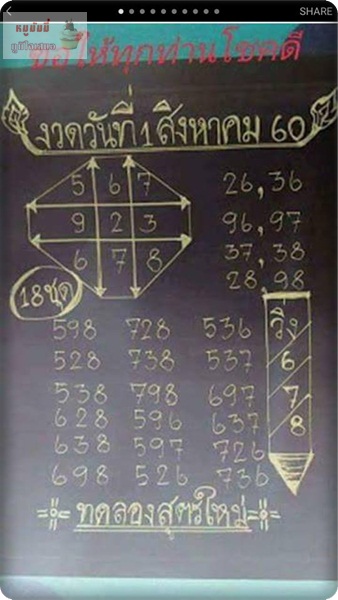 SHARE
หมูยันฮี
ขอให้ทุกท่านโชคดี
งวดวันที่ 1 สิงหาคม 60
5 6 7
9 2 3
6 7 8
26, 36
96, 97
37, 38
28, 98
18 ชุด
598 728 536
528 738 537
538 798 697
628 596 637
638 597 726
698 526 736
วิ่ง
6
7
8
ทดลองสูตรใหม่